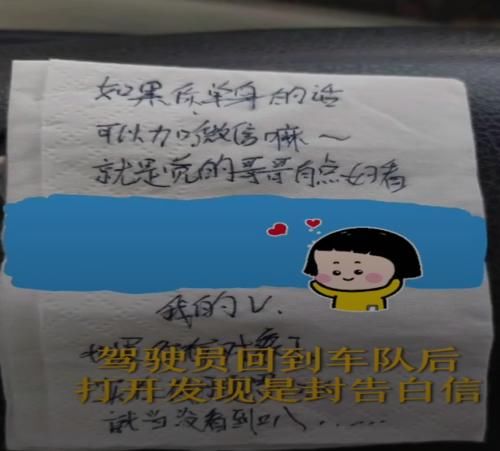 如果你单身的话
可以加微信嘛～
就是觉的哥哥有点好看
我的V.
驾驶员回到车队后
打开发现是封告白信
就当没看到叭......